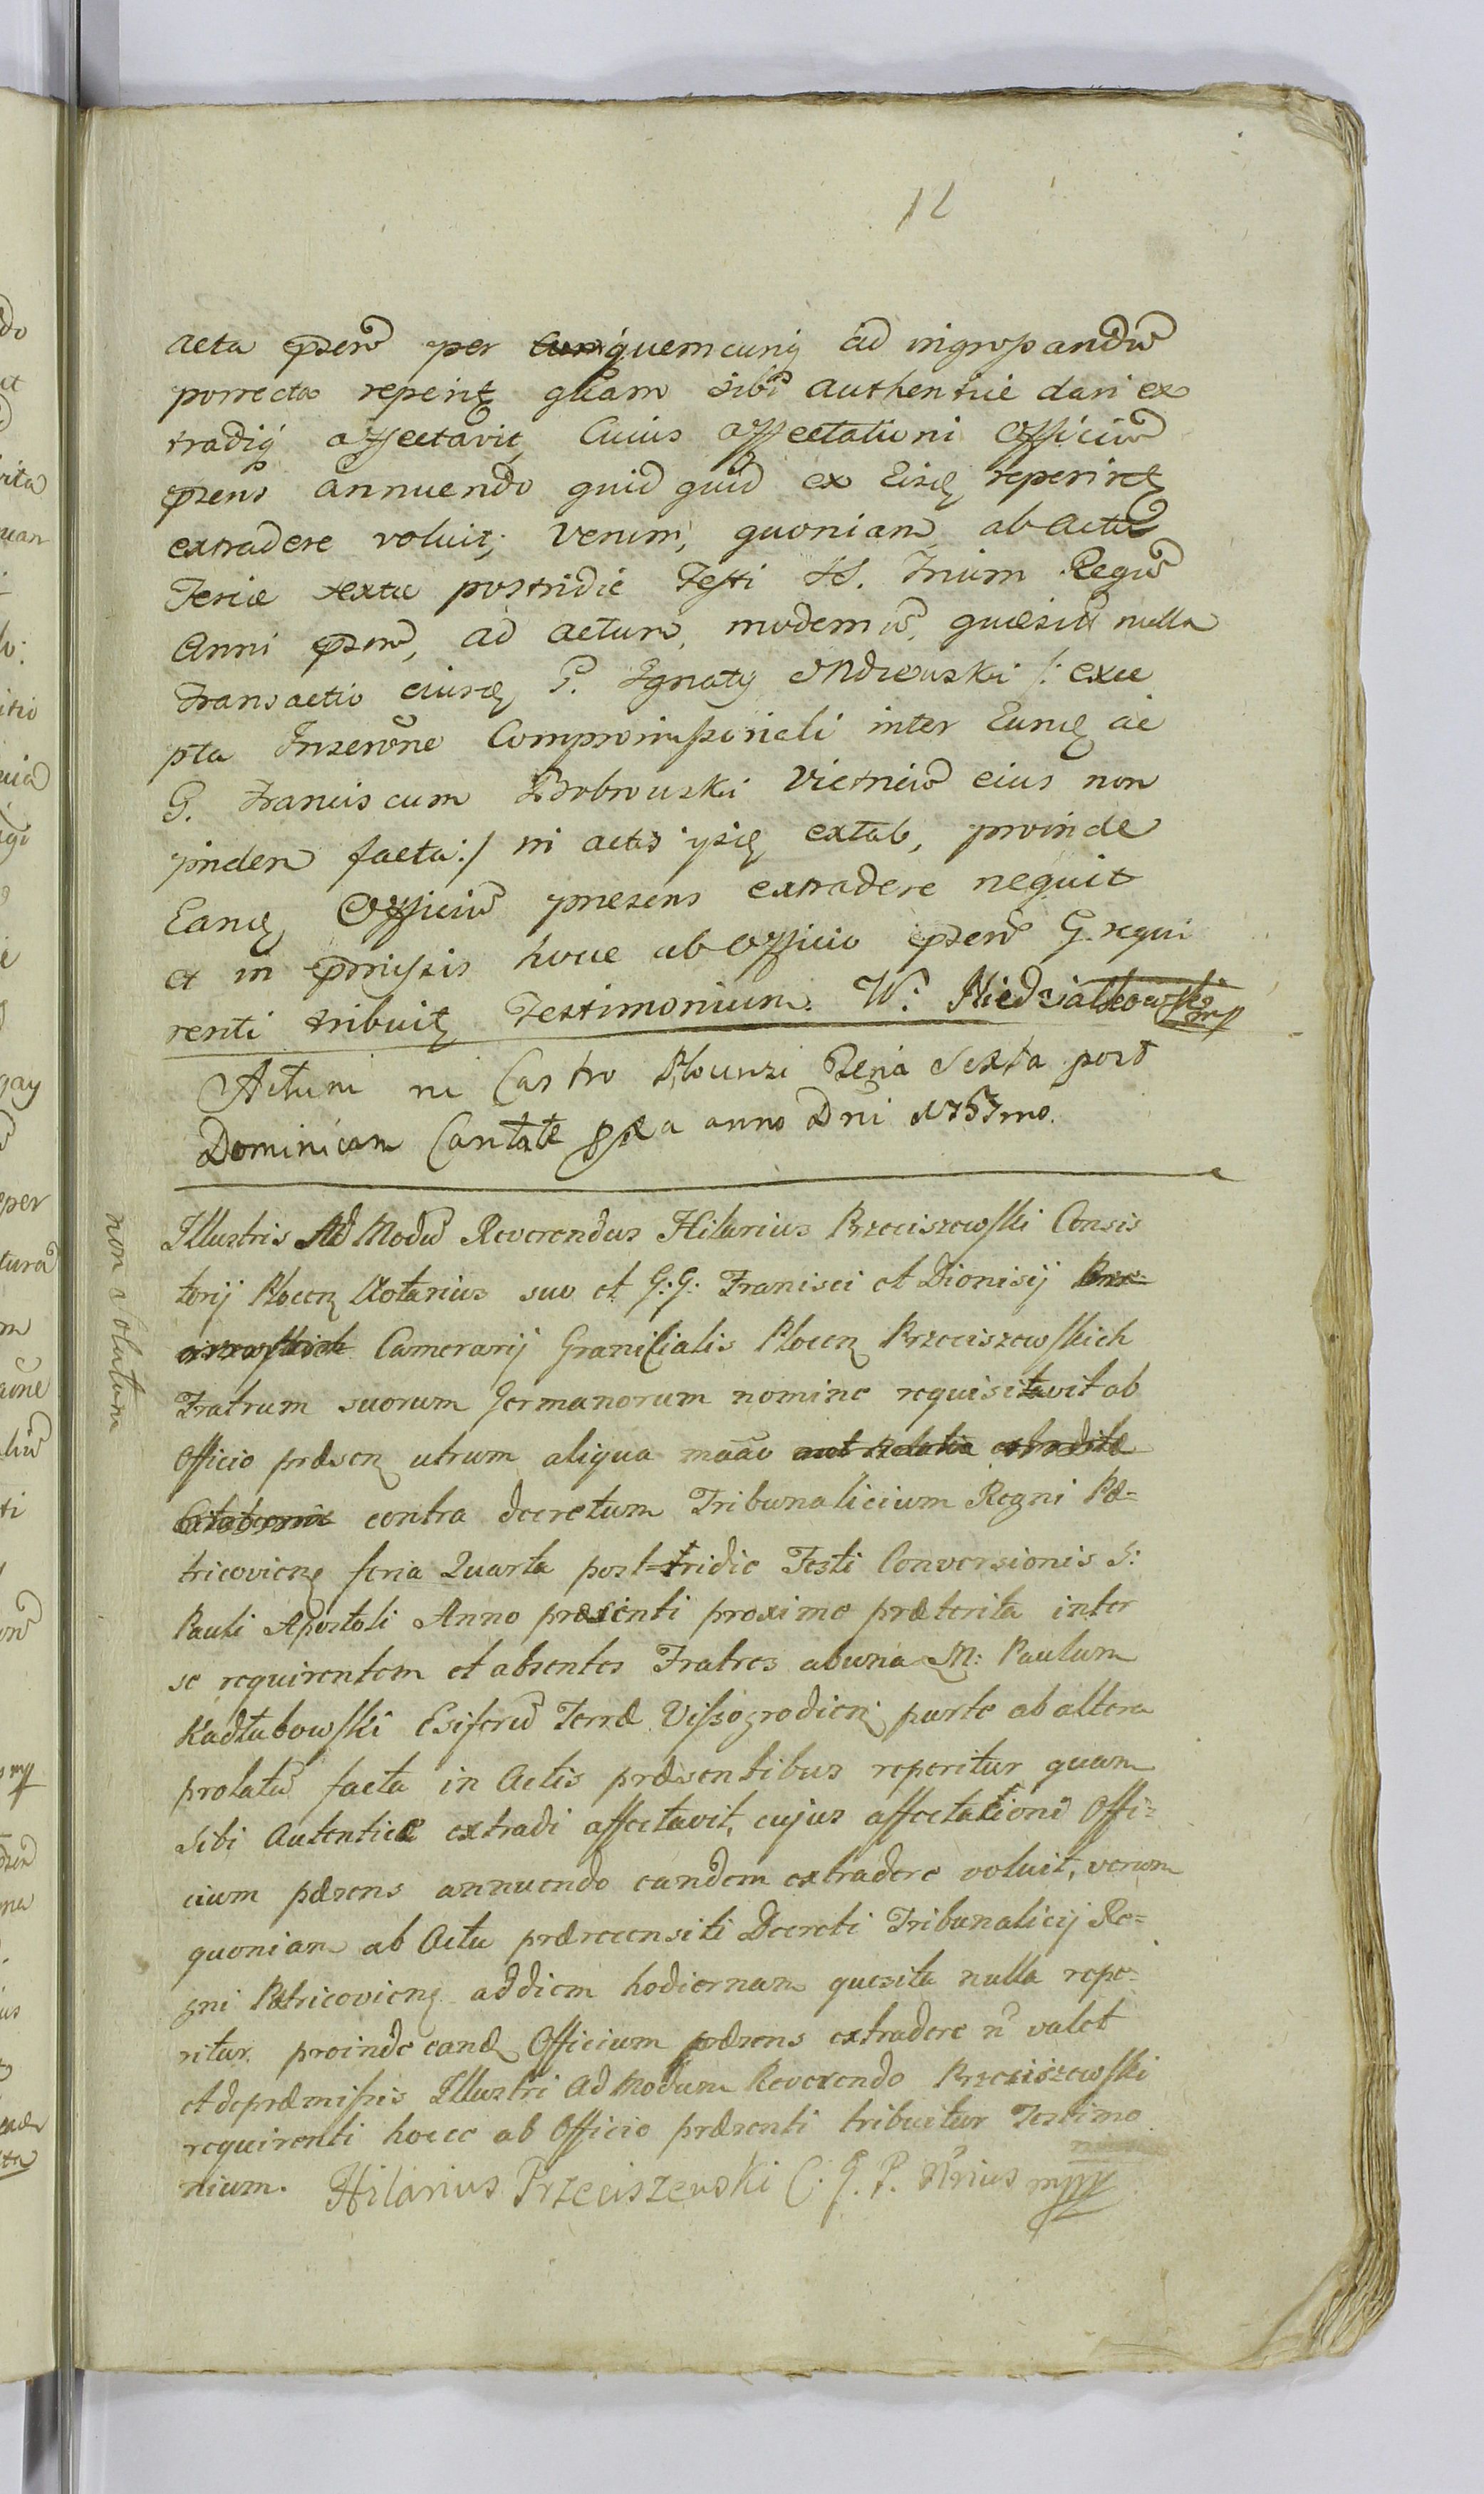 12
acta pzens per quemcunq ad ingrossandu
porrecta reperit quam sibi authentice dari ex
tradiq affectavit, Cuius affectationi Officiu
pzens annuendo quid quid ex Eisd reperiret
extradere voluit, Verum, quoniam ab actu
Feriæ sextæ postridie Festi SS. Trium Regu
Anni pzen, ad actum modernu quæsita nulla
transactio eiusd G. Ignaty /: exce
pta Inscrone Compromissoriali inter Eund ac
G. Franciscum Bobrowski Vietricu eius non
pinden facta :/ in actis ipsis extat, proinde
Eand Officiu præsens extradere nequit
et in pmissis hocce ab Officio pzen G. requi
renti tribuit Testimonium. W. Niedziałkowski mp
Actum in Castro Plocensi Feria Sexta post
Dominicam Cantate pxa anno Dni 1757mo.
non solutum
Illustris Ad Modu Reverendus Hilarius Przeciszewski Consis
torij Plocen Notarius suo et G:G: Francisci et Dionisij
Camerarij Granicialis Plocen Przeciszewskich
Fratrum suorum Germanorum nomine requisitavit ab
Officio præsen utrum aliqua maão aut relatio extradita
contra decretum Tribunalicium Regni Pe=
tricovien feria Quarta post=tridie Festi Conversionis S:
Pauli Apostoli Anno præsenti proxime præterita inter
se requirentem et absentes Fratres ab una M: Paulum
Kadłubowski Ensiferu Terræ Vissogrodien parte ab altera
prolatu facta in Actis præsentibus reperitur quam
sibi Autentice extradi affectavit, cujus affectationi Offi=
cium præsens annuendo eandem extradere voluit, verum
quoniam ab Actu prærecensiti Decreti Tribunalicij Re=
gni Petricovien ad diem hodiernam quesita nulla repe=
ritur proinde eand Officium præsens extradere n valet
et de præmissis Illustri Ad Modum Reverendo Przeciszewski
requirenti hocce ab Officio præsenti tribuitur Testimo
nium. Hilarius Przeciszewski C. G. P. Nrius mpp